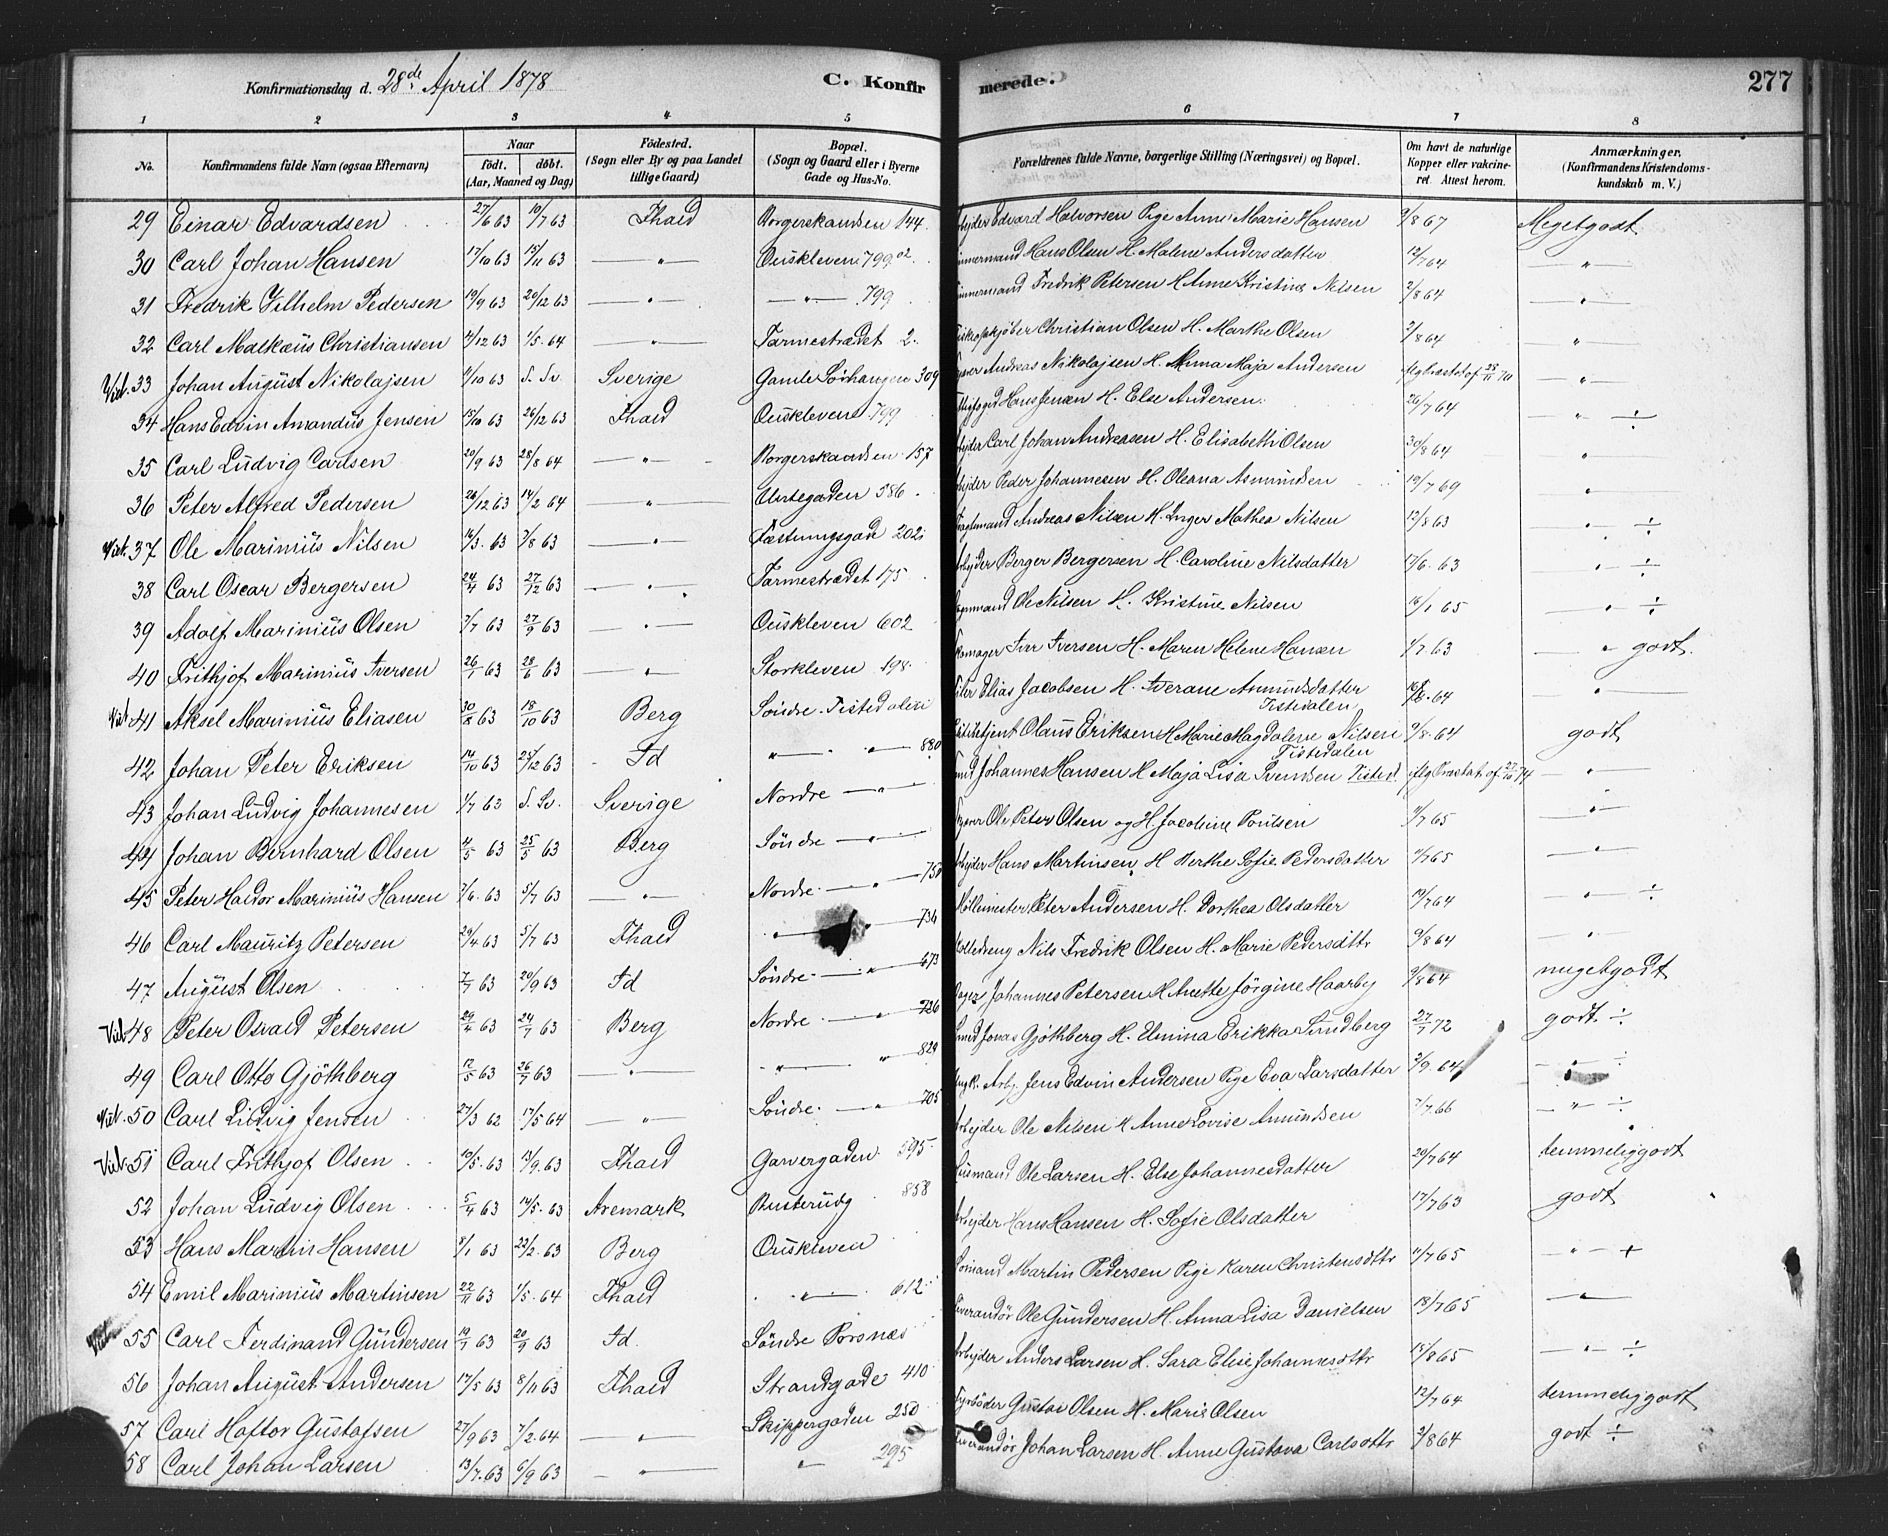 Konfirmationsdag d. 28de April 1878
C. Konfirmerede.
277
1 2 3 4 5 6 7 8
No. Konfirmandens fulde Navn (ogsaa Efternavn) Naar født. døbt. (Aar, Maaned og Dag) Fødested. (Sogn eller By og paa Landet tillige Gaard) Bopæl. (Sogn og Gaard eller i Byerne Gade og Hus-No. Forældrenes fulde Navne, borgerlige Stilling (Næringsvei) og Bopæl. Om havt de naturlige Kopper eller vakcineret Attest herom. Anmærkninger. (Konfirmandens Kristendomskundskab m. V.)
29 Einar Edvardsen 27/6 63 10/7 63 Fhald Borgerskandsen 144 Edvard Halvorsen Pige Anne Marie Hansen 2/8 67 Megetgodt
30 Carl Johan Hansen 17/10 63 15/11 63 — " — Ouskleven 799 Hans Olsen H. Malene Andersdatter 12/7 64 — " —
31 Fredrik Vilhelm Pedersen 19/9 63 20/12 63 — " — — " — 799 Fredrik Petersen H Anne Kristine Nelsen 2/8 64 — " —
32 Carl Malkæus Christiansen 4/12 63 1/5 64 — " — Farmestrædet 2. Christian Olsen H. Marthe Olsen 2/8 64 — " —
33 Johan August Nikolajsen 4/10 63 S. Sv. Sverige Gamle 309 Andreas Nikolajsen H. Anna Maja Andersen 70 — " —
34 Hans Edvin Amandus Jensen 15/10 63 26/12 63 Fhald Ouskleven 799 Hans Jensen H. Else Andersen. 26/7 64 — " — ÷
35 Carl Ludvig Carlsen 20/9 63 28/8 64 — " — Borgerskandsen 157 Carl Johan Andreasen H. Elisabeth Olsen 30/8 64 "
36 Peter Alfred Pedersen 26/12 63 14/2 64 — " — Urtegaden 586 Peder Johannesen H. Oleana Asmundsen 19/7 69 "
37 Ole Marinius Nilsen 14/3 63 2/8 63 — " — Fæstningsgade 202 Andreas Nilsen H. Inger Mathea Nilsen 12/8 63 — " — ÷
38 Carl Oscar Bergersen 24/4 63 27/12 63 — " — Farmestrædet 175 Berger Bergersen H. Caroline Nilsdatter 17/6 63 — " — ÷
39 Adolf Marinius Olsen 7/7 63 27/9 63 — " — Ouskleven 602 Ole Nilsen H. Kristine Nilsen 16/1 65 — " — ÷
40 Frithjof Marinius Iversen 26/1 63 28/6 63 — " — Storkleven 198 Iver Iversen H. Maren Helene Hansen 1/7 63 — " godt.
41 Aksel Marinius Eliasen 30/8 63 18/10 63 Berg Søndre Tistedalen Elias Jacobsen H. Amundsdatter Tistedalen 64 — " —
42 Johan Peter Eriksen 14/10 63 25/12 63 Id " — " — 880 Olaus Eriksen H Marie Magdalene Nilsen Tistedalen 9/8 64 godt
43 Johan Ludvig Johannesen 1/7 63 S. Sv. Sverige Nordre — " — Johannes Hansen H Maja Lisa Svendsen Tisted. 74 — " —
44 Johan Bernhard Olsen 4/5 63 25/5 63 Berg Søndre — " — Ole Peter Olsen og H. Jacobine Poulsen 11/7 65 — " —
45 Peter Haldor Marinius Hansen 7/6 63 5/7 63 — " — Nordre — " — 750 Hans Martinsen H Berthe Sofie Pedersdatter 11/7 65 — " —
46 Carl Mauritz Petersen 29/4 63 5/7 63 Fhald " — " — 736 Peter Andersen H. Dorthea Olsdatter 19/7 64 — " — ÷
47 August Olsen 7/7 63 20/9 63 Id Søndre — " — 673 Nils Fredrik Olsen H. Marie Pedersdttr 9/8 64 — " —
48 Peter Osvald Petersen 29/4 63 24/7 63 Berg Nordre — " — 726 Johannes Petersen H Anette Jørgine Haarby 9/8 64 megetgodt
49 Carl Otto Gjøthberg 12/5 63 26/7 63 — " — " — " — 829 Jonas Gjøthberg H. Elmina Erikka Sundberg 27/7 72 godt ÷
50 Carl Ludvig Jensen 27/3 62 17/5 64 — " — Søndre — " — 705 Jens Edvin Andersen Pige Eva Larsdatter 2/9 64 — " — ÷
51 Carl Frithjof Olsen 10/5 63 13/9 63 Fhald Garvergaden 595 Ole Nilsen H Anne Lovise Amundsen 7/7 66 — " — ÷
52 Johan Ludvig Olsen 5/4 63 14/5 63 Aremark Busterudg 858 Ole Larsen H. Else Johannesdatter 20/7 64 temmeliggodt
53 Hans Martin Hansen 8/1 63 22/2 63 Berg Ouskleven Hans Hansen H. Sofie Olsdatter 17/7 63 godt
54 Emil Marinius Martinsen 22/11 63 1/5 64 Fhald — " — 612 Martin Pedersen Pige Karen Christensdttr 11/7 65 — " — +
55 Carl Ferdinand Gundersen 19/7 63 20/9 63 Id. Søndre Porsnæs Ole Gundersen H. Anna Lisa Danielsen 18/7 65 — " —
56 Johan August Andersen 17/5 63 8/11 63 Fhald Strandgade 410 Anders Larsen H. Sara Elise Johannesdttr 15/8 65 — " — ÷
57 Carl Haftor Gustafsen 27/9 63 7/2 64 — " — Skippergaden 250 Gustav Olsen H. Marie Olsen 12/7 64 temmeliggodt
58 Carl Johan Larsen 13/7 63 6/9 63 — " — " 295 Johan Larsen H. Anne Gustava Carlsdttr 2/8 64 godt ÷